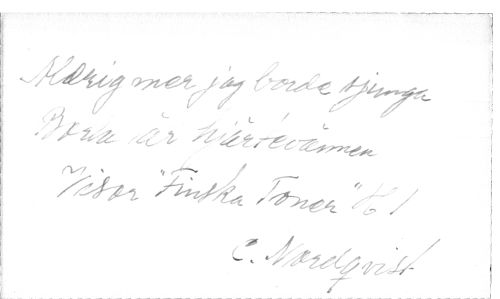 Aldrig mer jag borde sjunga
Borta är hjärtevännen
Visor "Finska Toner" H 1
C. Nordqvist